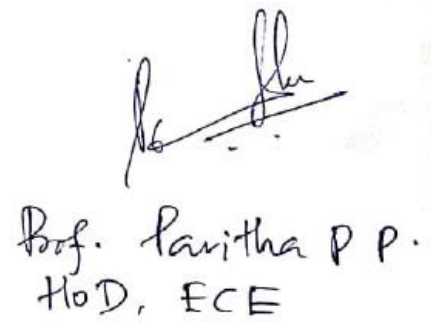 Prof. Pavitha P P.
HOD, ECE